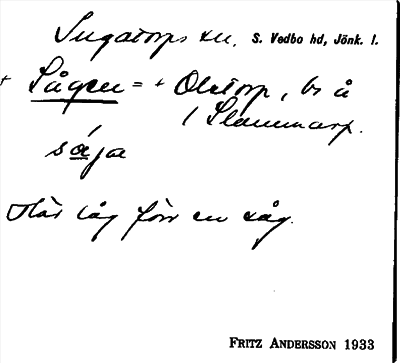 Ingatorps sn. S. Vedbo hd, Jönk. l.
+ Sågen = + Olstorp, br å
/ Slammarp.
såja
Här låg förr en såg.
FRITZ ANDERSSON 1933